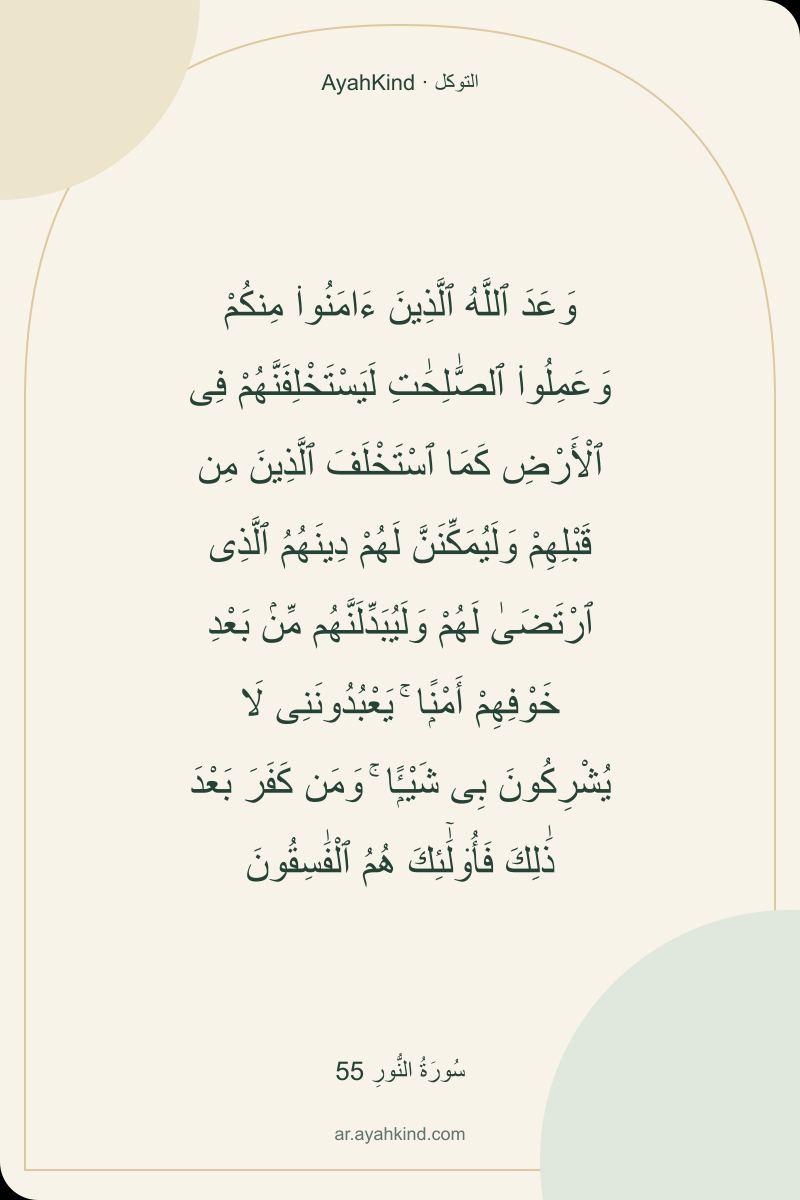 AyahKind · التوكل
وَعَدَ ٱللَّهُ ٱلَّذِينَ ءَامَنُوا۟ مِنكُمْ
وَعَمِلُوا۟ ٱلصَّٰلِحَٰتِ لَيَسْتَخْلِفَنَّهُمْ فِى
ٱلْأَرْضِ كَمَا ٱسْتَخْلَفَ ٱلَّذِينَ مِن
قَبْلِهِمْ وَلَيُمَكِّنَنَّ لَهُمْ دِينَهُمُ ٱلَّذِى
ٱرْتَضَىٰ لَهُمْ وَلَيُبَدِّلَنَّهُم مِّنۢ بَعْدِ
خَوْفِهِمْ أَمْنًۭا ۚ يَعْبُدُونَنِى لَا
يُشْرِكُونَ بِى شَيْـًۭٔا ۚ وَمَن كَفَرَ بَعْدَ
ذَٰلِكَ فَأُو۟لَٰٓئِكَ هُمُ ٱلْفَٰسِقُونَ
سُورَةُ النُّورِ 55
ar.ayahkind.com